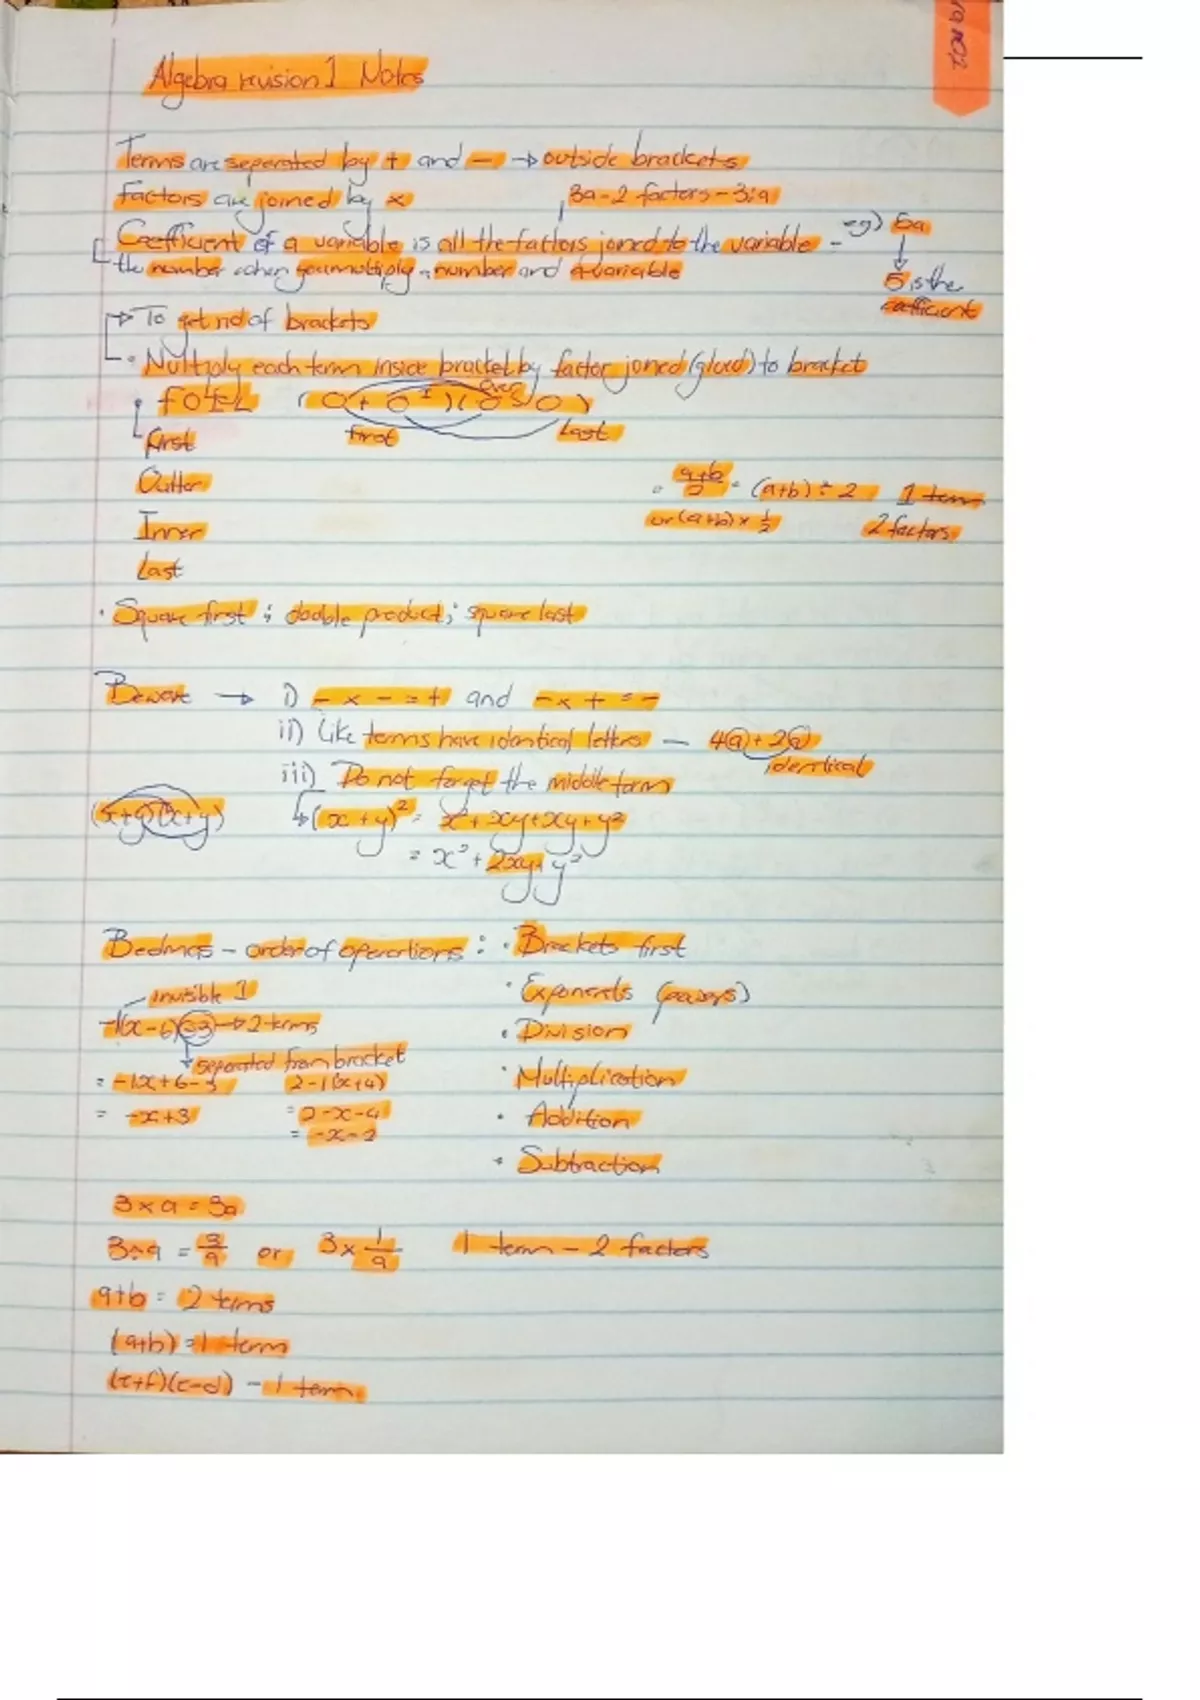 Algebra revision 1 Notes
Terms are seperated by + and - → outside brackets
Factors are joined by ×
3a - 2 factors - 3;a
Coefficient of a variable is all the factors joined to the variable - eg) 5a
the number when you multiply a number and a variable
5 is the
coefficient
→ To get rid of brackets
• Multiply each term inside bracket by factor joined (glued) to bracket
• FOIL
First
first
Last
Outter
= a+b/2 = (a+b) ÷ 2 1 term
or (a+b) × 1/2 2 factors
Inner
Last
• Square first ; double product ; square last
Beware → i) - × - = + and - × + = -
ii) Like terms have identical letters - 4a + 2a
identical
iii) Do not forget the middle term
(x+y)(x+y) ↳ (x + y)² = x² + xy + xy + y²
= x² + 2xy + y²
Bedmas - order of operations : • Brackets first
invisible 1
• Exponents
-1(x-6)-3 → 2 terms
• Division
seperated from bracket
= -1x+6-3 2-1(x+4)
• Multiplication
= -x+3 = 2-x-4
• Addition
= -x-2
• Subtraction
3 × a = 3a
3÷a = 3/a or 3 × 1/a 1 term - 2 factors
a+b = 2 terms
(a+b) = 1 term
- 1 term